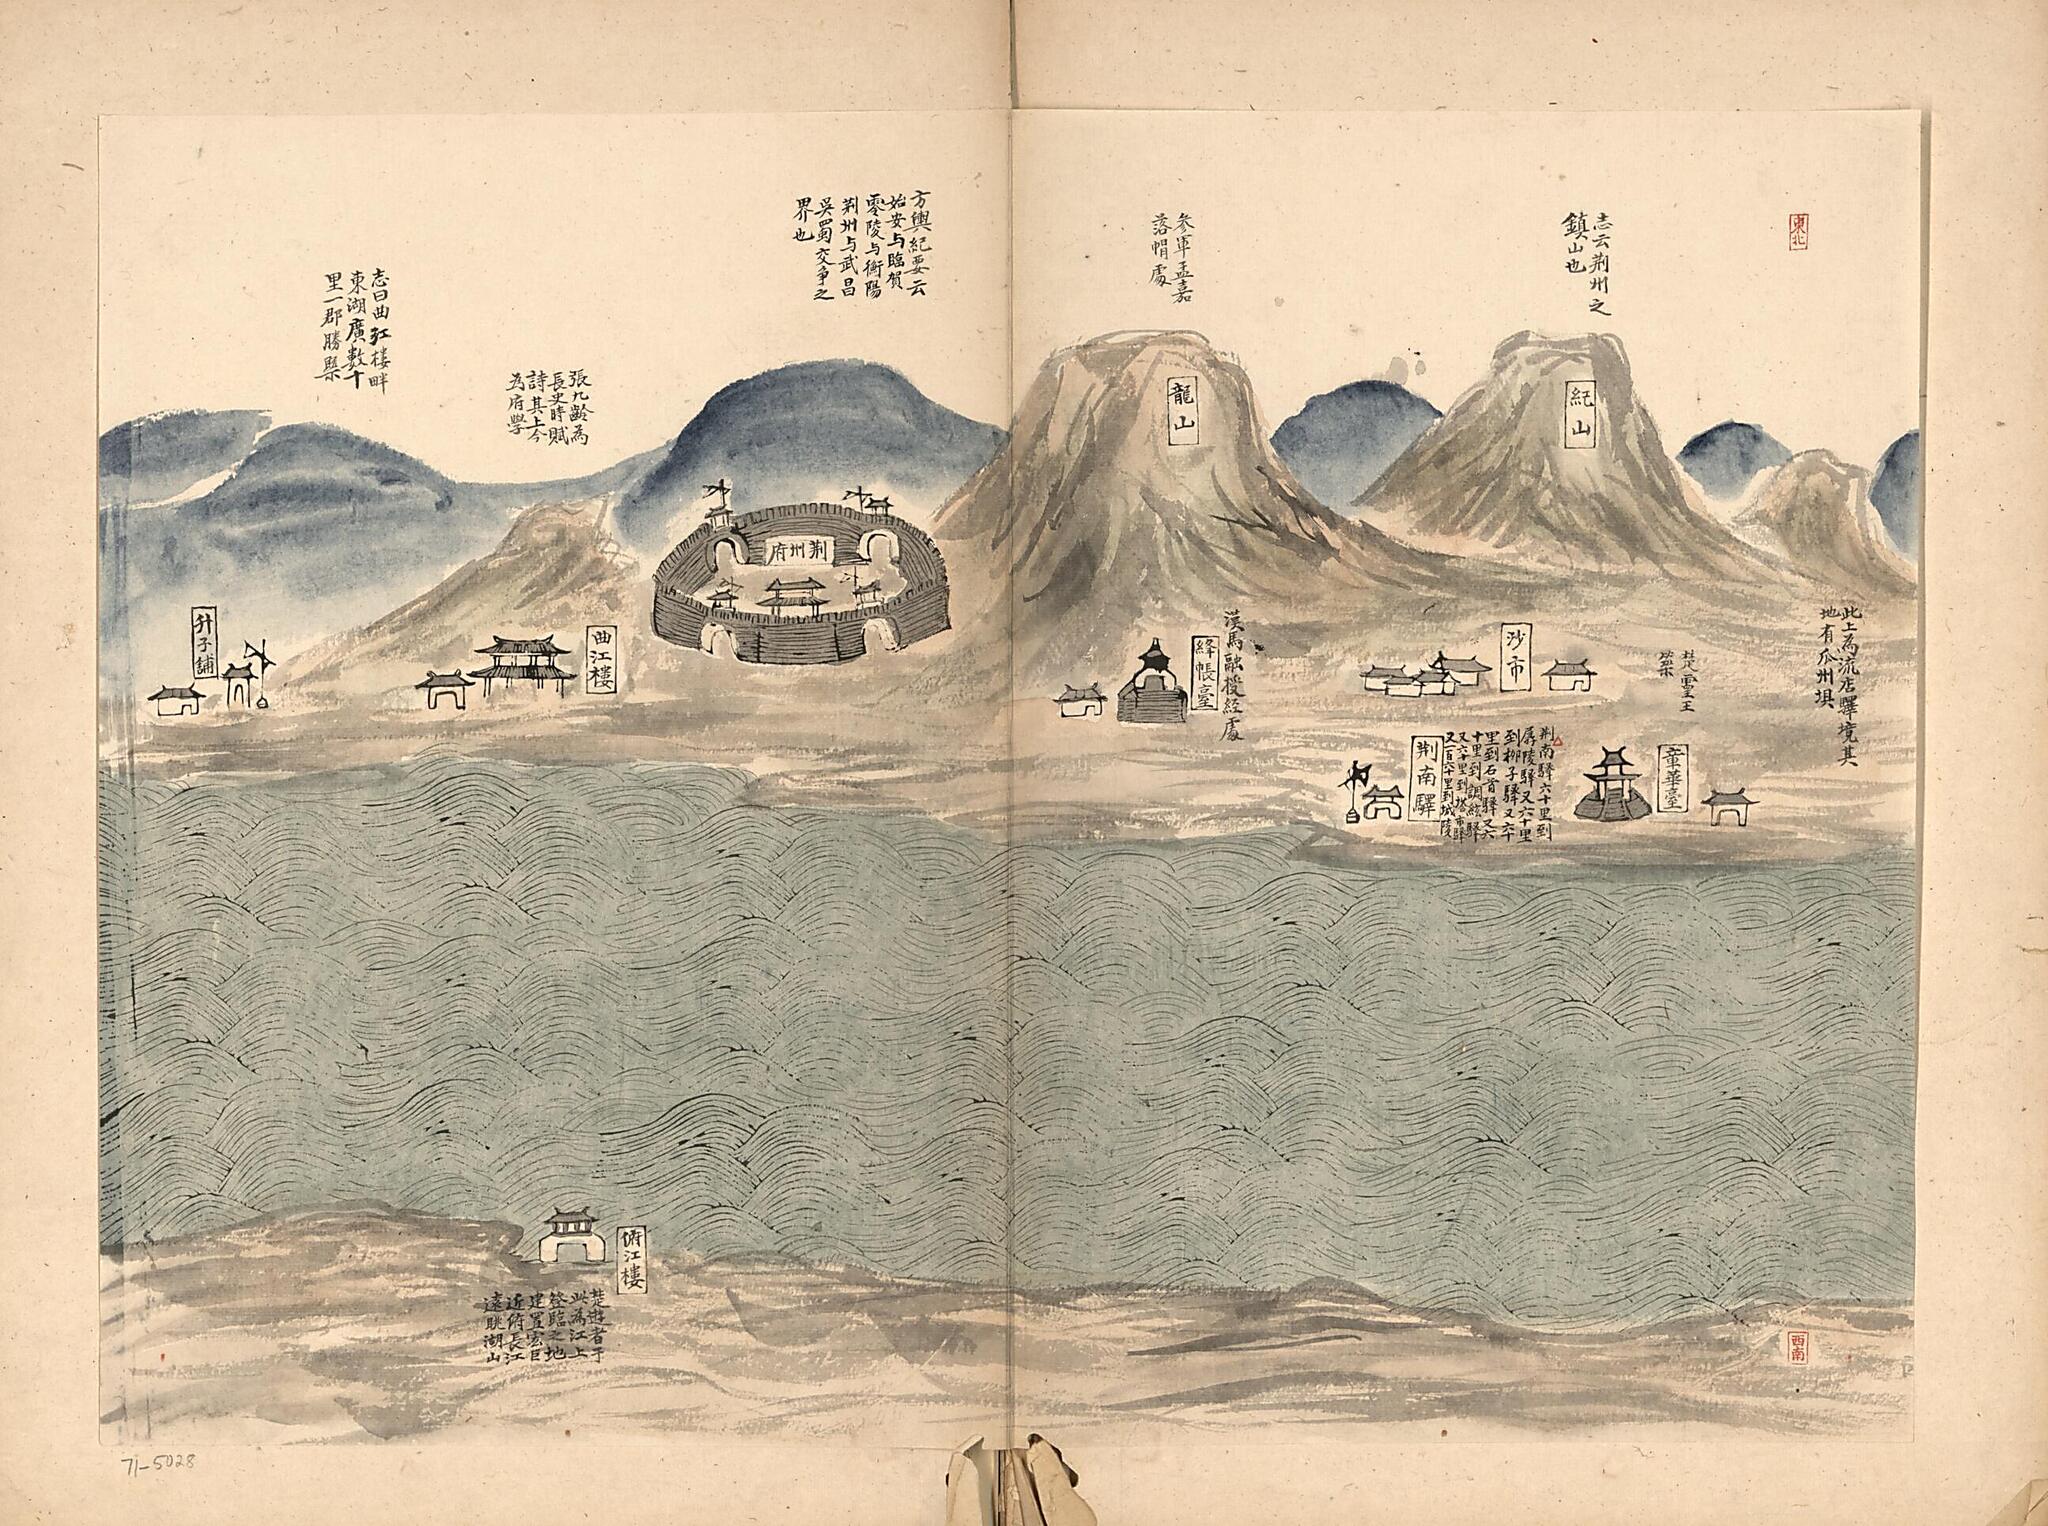 東北
志云荆州之
鎮山也
紀山
參軍孟嘉
落帽處
龍山
方輿紀要云
始安与臨賀
零陵与衡陽
荆州与武昌
吳蜀交争之
界也
荆州府
張九齡為
長史時賦
詩其上今
為府學
志曰曲江樓畔
東湖廣數十
里一郡勝槩
此上為流店驛境其
地有瓜州垻
楚靈王
築
章華臺
沙市
荆南驛六十里到
孱陵驛又六十里
到柳子驛又六十
里到石首驛又六
十里到調絃驛
又六十里到塔市驛
又一百六十里到城陵
荆南驛
漢馬融授經處
絳帳臺
曲江樓
升子舖
俯江樓
楚遊者于
此為江上
登臨之地
建置宏巨
近俯長江
遠眺湖山
西南
71-5028